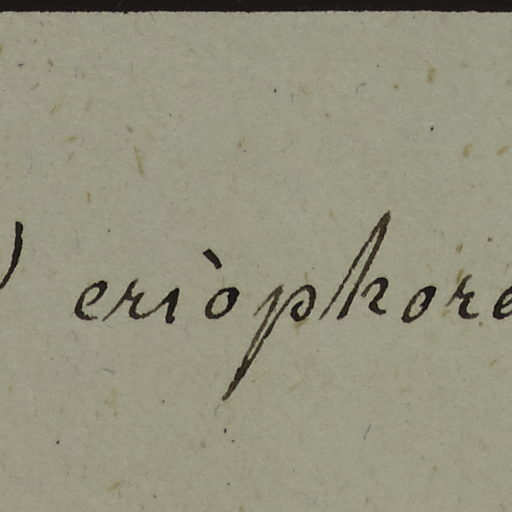 ) eriòphore